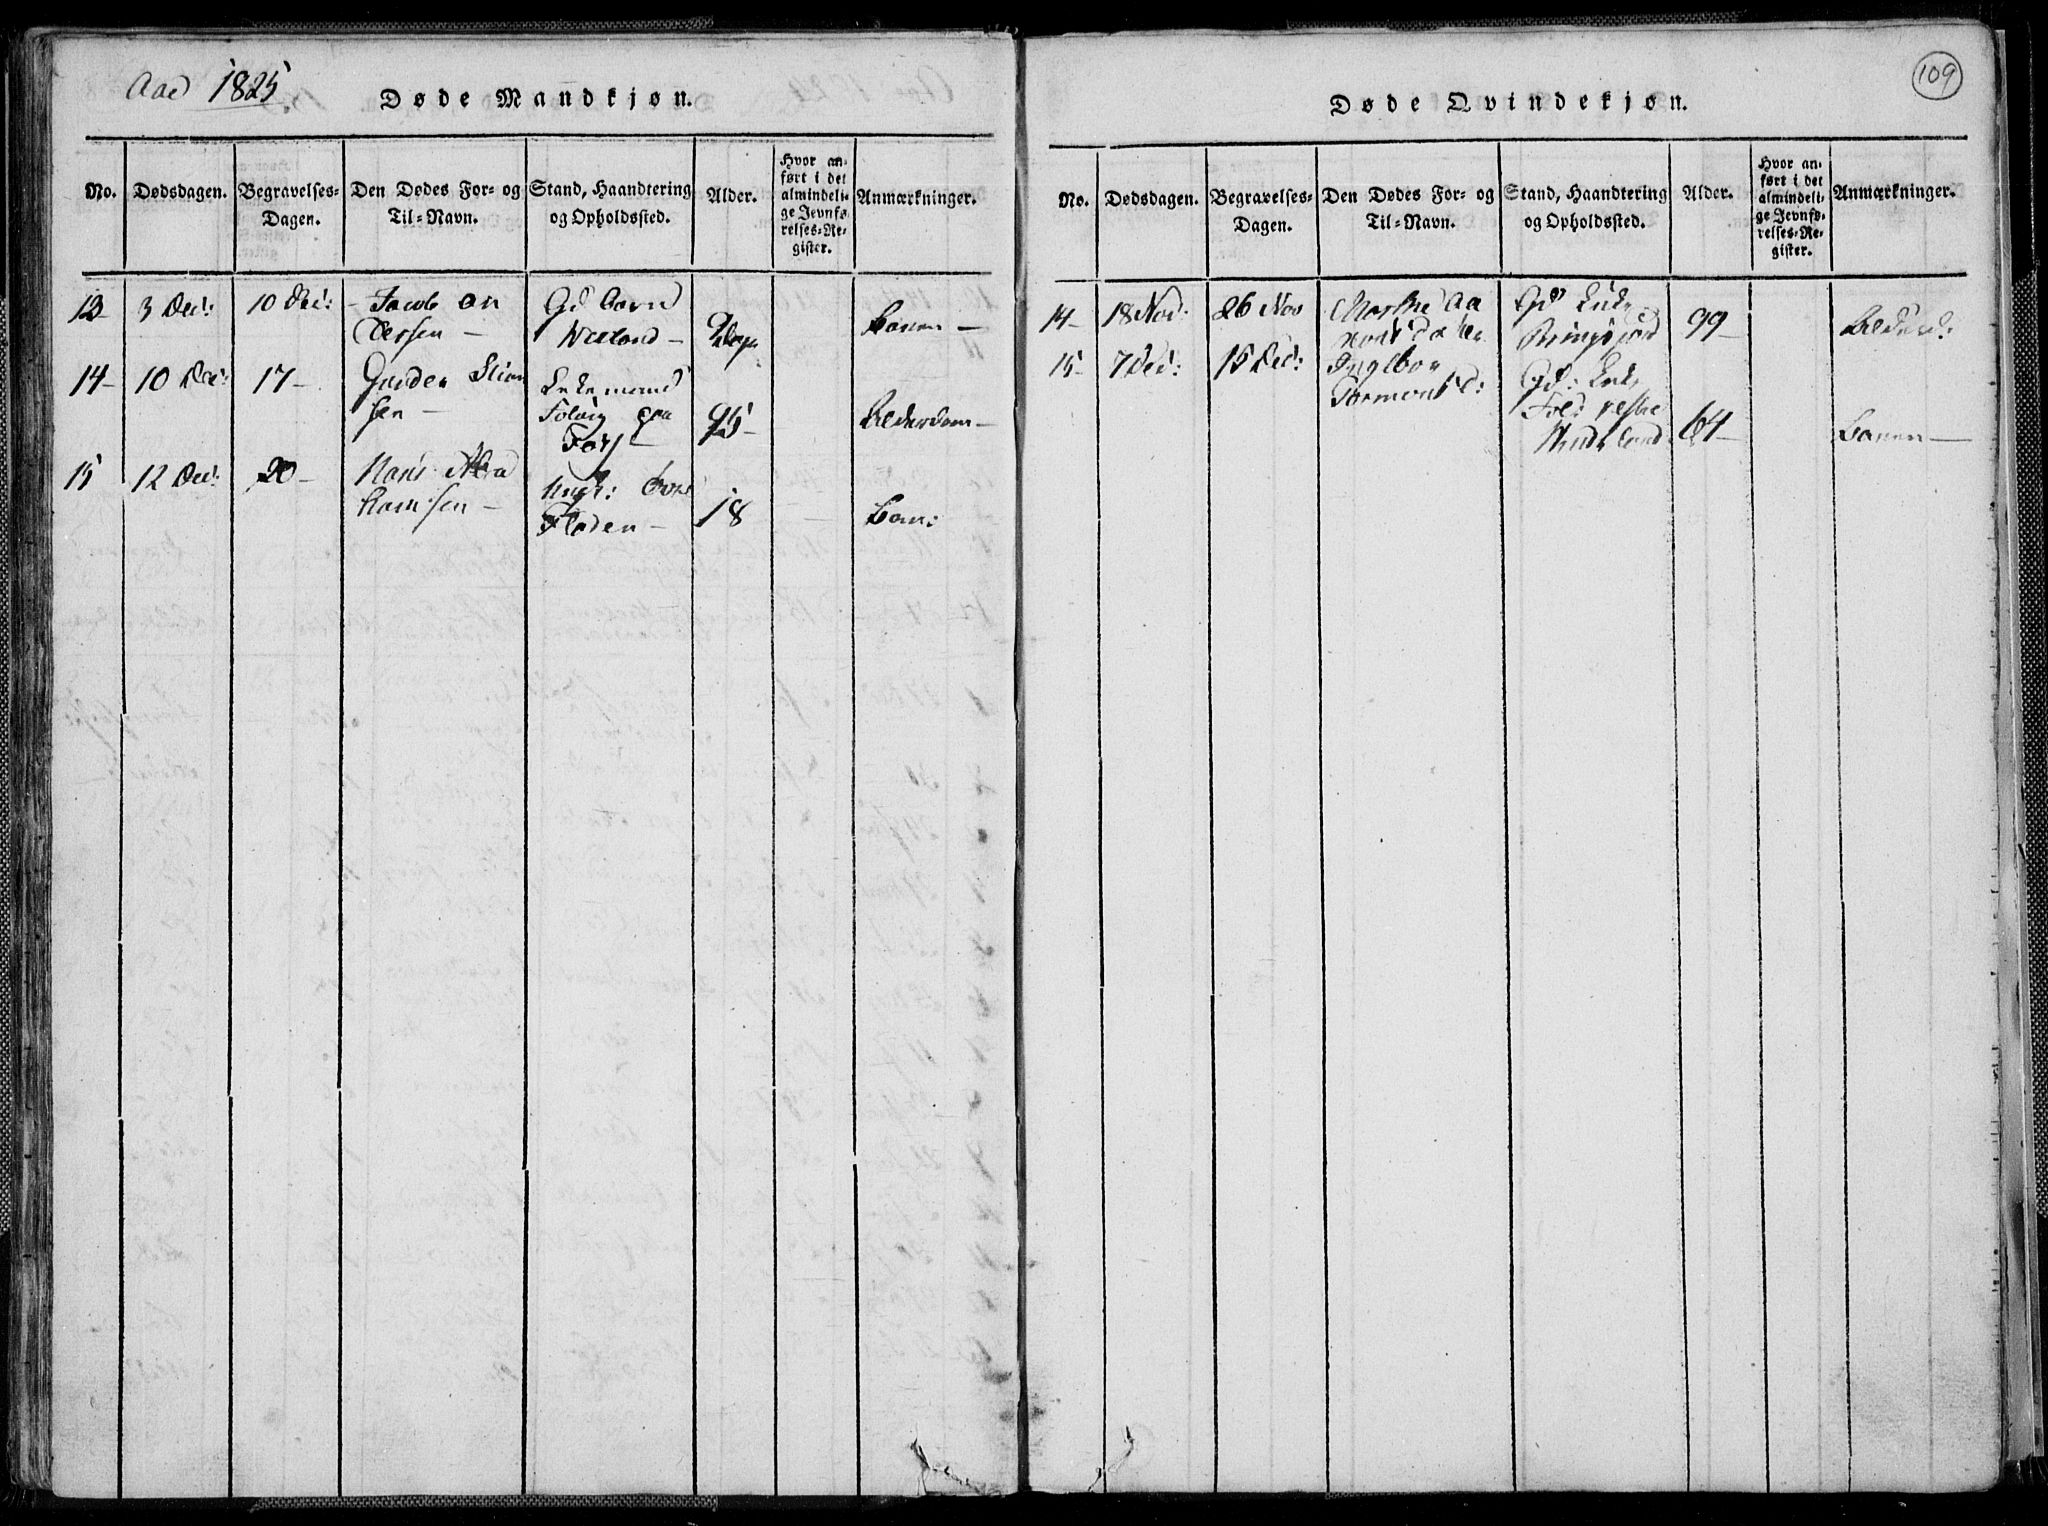 Aar 1825
Døde Mandkjøn.
No.
Dødsdagen.
Begravelses-
Dagen.
Den Dødes For- og
Til-Navn.
Stand, Haandtering
og Opholdssted.
Alder.
Hvor an-
ført i det
almindeli-
ge Jevnfø-
relses-Re-
gister.
Anmærkninger.
13
3 Dec:
10 Dec:
Jacob An
dersen —
Gd Barn
Nesland —
14 —
10 Dec:
17 —
sen —
95 —
Alderdom —
15
12 Dec:
20 —
Hans Abra
hamsen —
Fladen —
18
109
Døde Qvindekjøn.
No.
Dødsdagen.
Begravelses-
Dagen.
Den Dødes For- og
Til-Navn.
Stand, Haandtering
og Opholdssted.
Alder.
Hvor an-
ført i det
almindeli-
ge Jevnfø-
relses-Re-
gister.
Anmærkninger.
14 —
18 Nov:
26 Nov
Marthe Aa
Gd Enke
Ringsfjord
99 —
Alderd:
15 —
7 Dec:
15 Dec:
Ingebor
Tormods d:
Gd: Enke
64 —